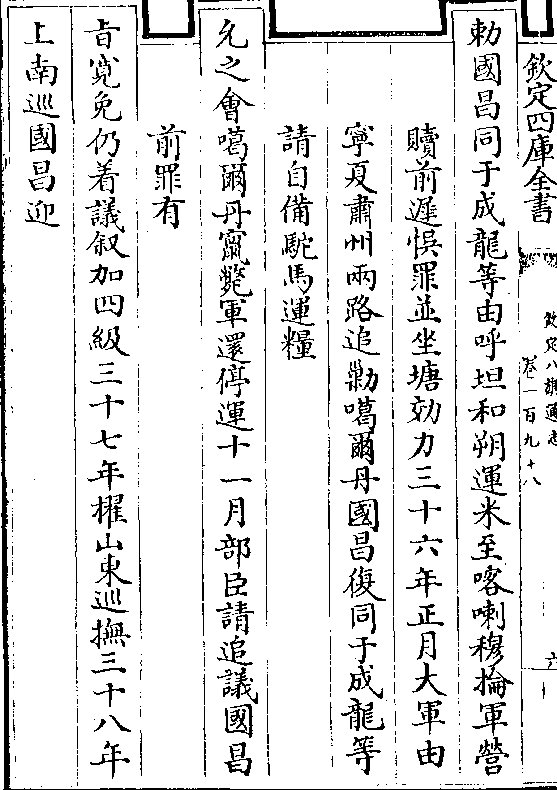 欽定四庫全書
欽定八旗通志
卷二百九十八
六
勅國昌同于成龍等由呼坦和朔運米至喀喇穆掄軍營
贖前遲悞罪並坐塘効力三十六年正月大軍由
寧夏肅州兩路追勦噶爾丹國昌復同于成龍等
請自備駝馬運糧
允之會噶爾丹竄斃軍還停運十一月部臣請追議國昌
前罪有
旨寛免仍着議叙加四級三十七年擢山東巡撫三十八年
上南巡國昌迎